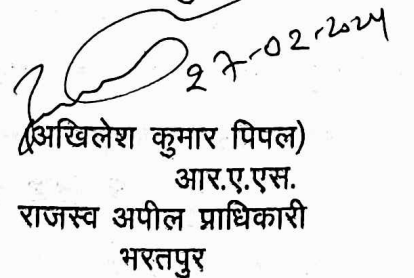 27-02-2024
(अखिलेश कुमार पिपल)
आर.ए.एस.
राजस्व अपील प्राधिकारी
भरतपुर